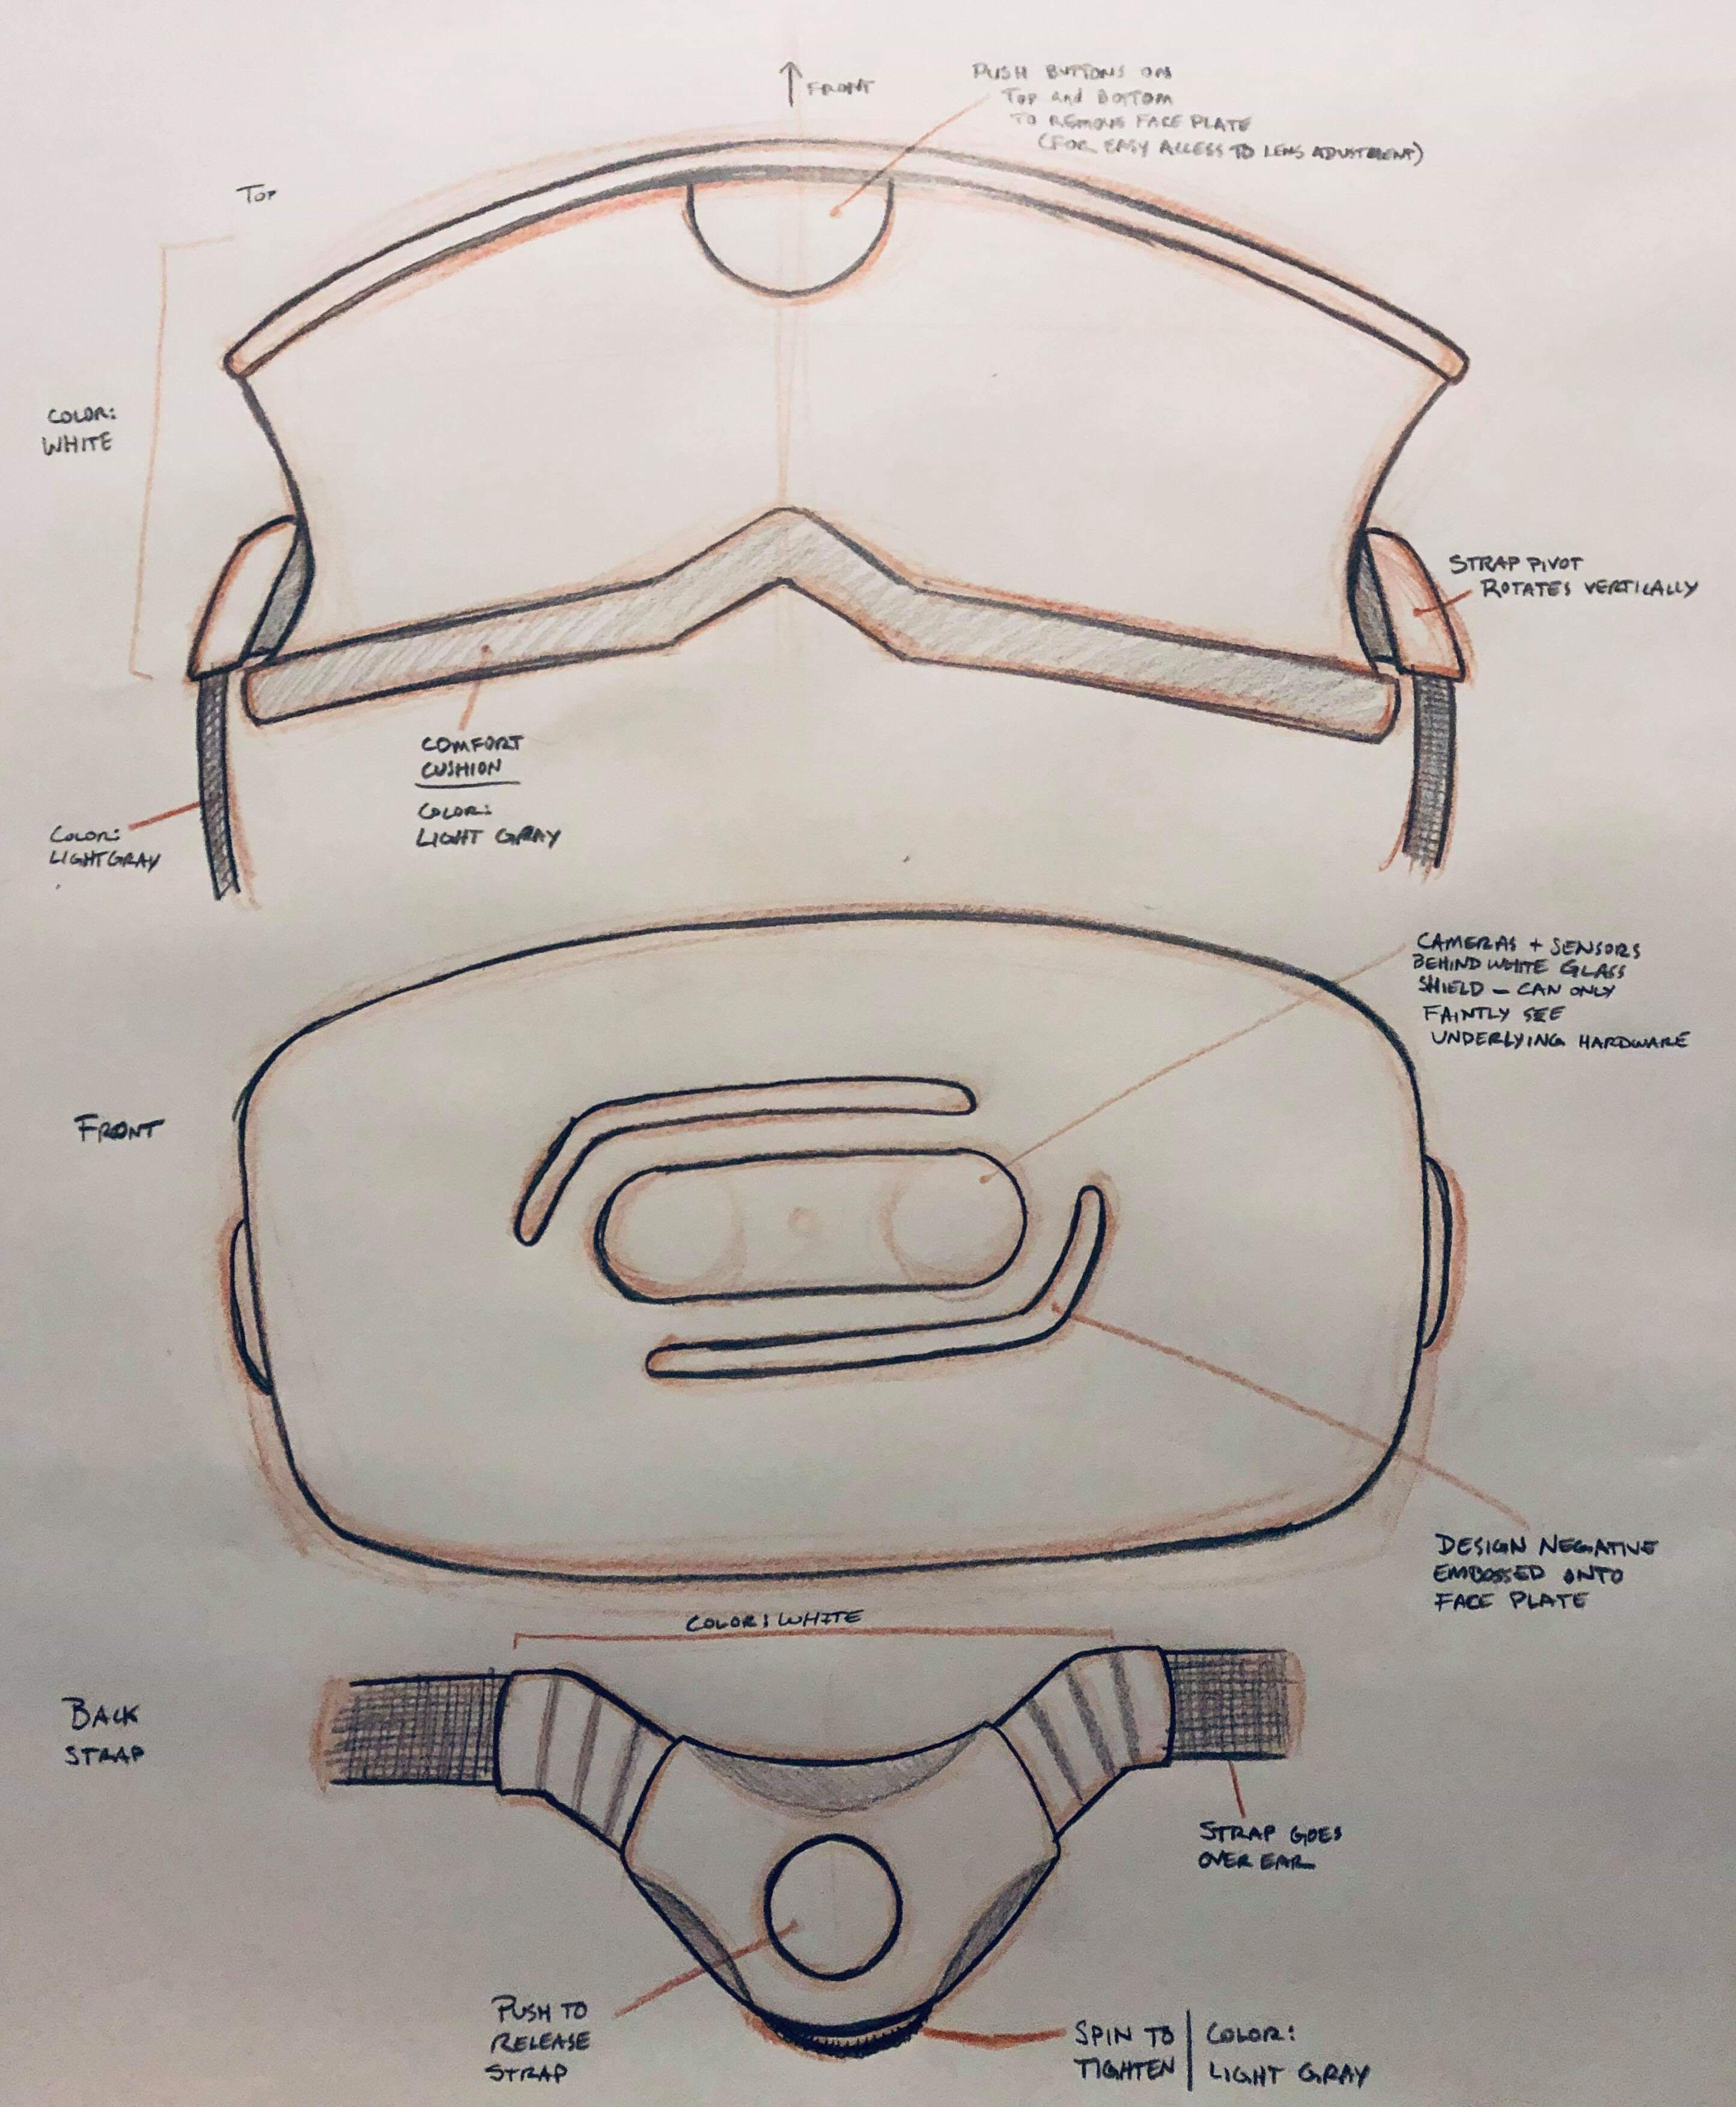 ↑ FRONT
PUSH BUTTONS ON
TOP and BOTTOM
TO REMOVE FACE PLATE
(FOR EASY ACCESS TO LENS ADUSTMENT)
TOP
COLOR:
WHITE
STRAP PIVOT
ROTATES VERTICALLY
COMFORT
CUSHION
COLOR:
LIGHT GRAY
COLOR:
LIGHT GRAY
CAMERAS + SENSORS
BEHIND WHITE GLASS
SHIELD – CAN ONLY
FAINTLY SEE
UNDERLYING HARDWARE
FRONT
DESIGN NEGATIVE
EMBOSSED ONTO
FACE PLATE
COLOR: WHITE
BACK
STRAP
STRAP GOES
OVER EAR
PUSH TO
RELEASE
STRAP
SPIN TO | COLOR:
TIGHTEN | LIGHT GRAY